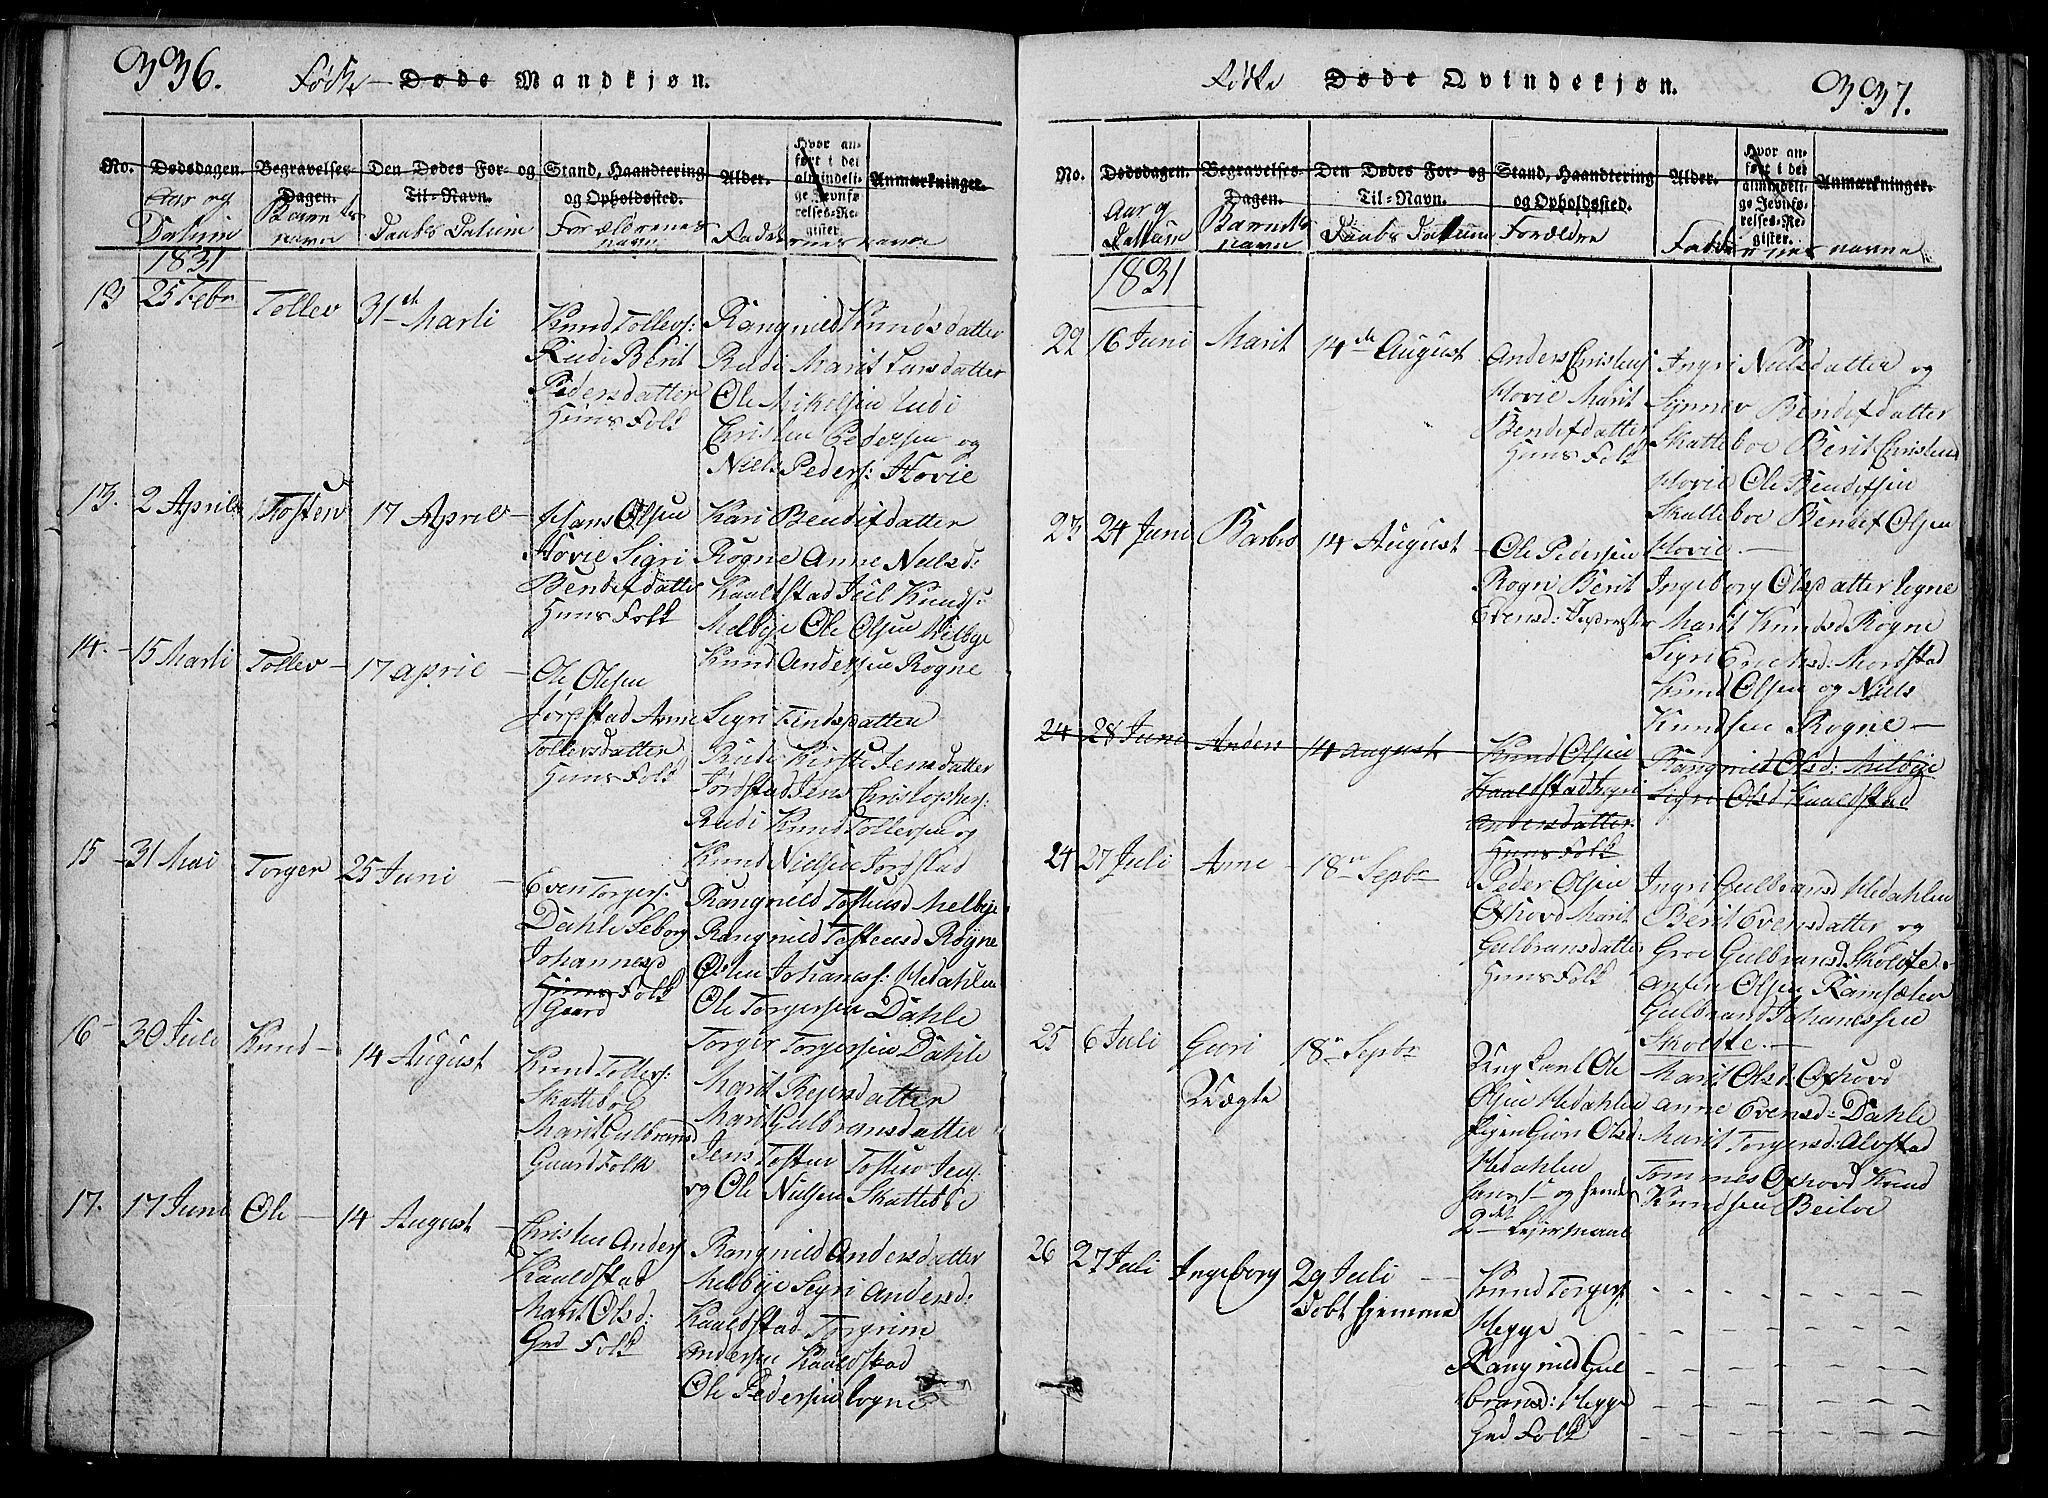 336.
Fødte Døde Mandkjøn.
No. Dødsdagen. Begravelses-Dagen. Den Dødes For- og Til-Navn. Stand, Haandtering og Opholdssted. Alder. Hvor anført i det almindelige Jevnførelses-Register Anmærkninger.
Aar og Datum Barnets navn Daabs Datum Forældrenes navn Faddernes navne
1831
13 25 Febr Tollev 31th Marti
Knud Tollevs:
Rudi Berit
Pedersdatter
Huus Folk
Rangnild Knudsdatter
Rudi Marit Larsdatter
Ole Mikelsen Rudi
Christen Pedersen og
Niels Peders: Hovie
13. 2 April Tosten 17 April
Hans Olsen
Hovie Sigri
Bendixdatter
Huus Folk
Kari Bendixdatter
Rogne Anne Nielsd:
Kaaldstad Juel Knuds:
Melbye Ole Olsen Melbye
Knud Andersen Rogne
14. 15 Marti Tollev 17 april
Ole Olsen
Jørdstad Anne
Tollevsdatter
Huus Folk
Segri Findsdatter
Rudi Kirsti Jensdatter
Jørdstad Jens Christophers:
Rudi Knud Tollevsen og
Knud Nielsen Jordstad
15 31 Mai Torger 25 Juni
Even Torgers:
Dahle Seborg
Johannesd
Huus Folk
Gaard
Rangnild Tostensd Melbye
Rangnild Tostensd Rogne
Østen Johaness: Medahlen
Ole Torgersen Dahle
Torger Torgersen Dahle
16 30 Juli Knud 14 August
Knud Tollevs:
Skattebo
Marit Gulbrands
Guard Folk
Marit Reiersdatter
Marit Gulbransdatter
Jens Tosten Tosten Jens:
og Ole Nielsen Skatteboe
17. 17 Juni Ole 14 August
Christen Anders
Kaaldstad
Marit Olsd:
Grd Folk
Rangnild Andersdatter
Melbye Segri Andersd:
Kaaldstad Torgrim
Andersen Kaaldstad
Ole Pedersen Rogne
337.
Fødte Døde Qvindekjøn.
No. Dødsdagen. Begravelses-Dagen. Den Dødes For- og Til-Navn. Stand, Haandtering og Opholdssted. Alder. Hvor anført i det almindelige Jevnførelses-Register. Anmærkninger.
Aar og Datum Barnets navn Daabs Datum Forældre Faddernes navne
1831
22 16 Juni Marit 14de August
Anders Christens
Hovie Marit
Bendixdatter
Huus Folk
Ingri Nielsdatter og
Synnev Bendixdatter
Skatteboe Berit Christend
Hovie Ole Bendixsen
Skatteboe Bendix Olsen
Hovie.
23 24 Juni Barbro 14 August
Ole Pedersen
Rogn Berit
Evensd:
Ingeborg Olsdatter Rogne
Marit Knudsd Rogne
Sigri Ericksd: Mordstad
Knud Olsen og Niels
Knudsen Rogne
24 28 Juni Anders 14 august
Knud Olsen
Kaaldstad
Andersdatter
Huus Folk
Rangnild Olsd: Melbye
Sigri Olsd Kaaldstad
24 27 Juli Arne 18 Septbr
Peder Olsen
Oxhovd Marit
Gulbransdatter
Huus Folk
Ingri Gulbransd Medahlen
Berit Evensdatter og
Groe Gulbransd Skoldte:
Anfin Olsen Ramsæter
Gulbrand Johanessen
Skoldte.
25 6 Juli Guri 18 Septbr
Uægte
Ungkarl Ole
Olsen Medahlen
Pigen Guri Olsd:
Medahlen
hans 1 og hendes
2det Leiermaal
Marit Olsd: Oxhovd
Anne Evensd: Dahle
Marit Torgersd: Alvstad
Tommes Oxhovd Knud
Knudsen Beiloe
26 27 Juli Ingeborg 29 Juli
Døbt hjemme
Knud Torgers:
Hegge
Rangnild Gul
bransd: Hegge
Grd Folk